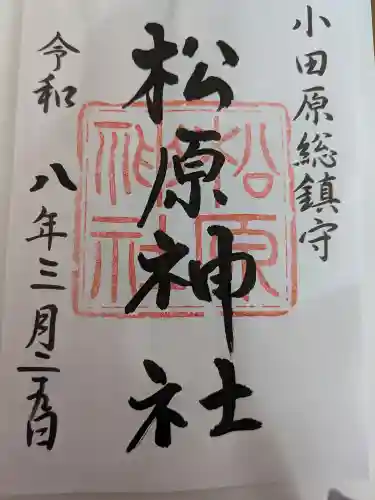 小田原総鎮守
松原神社
松原神社
令和八年三月二五日